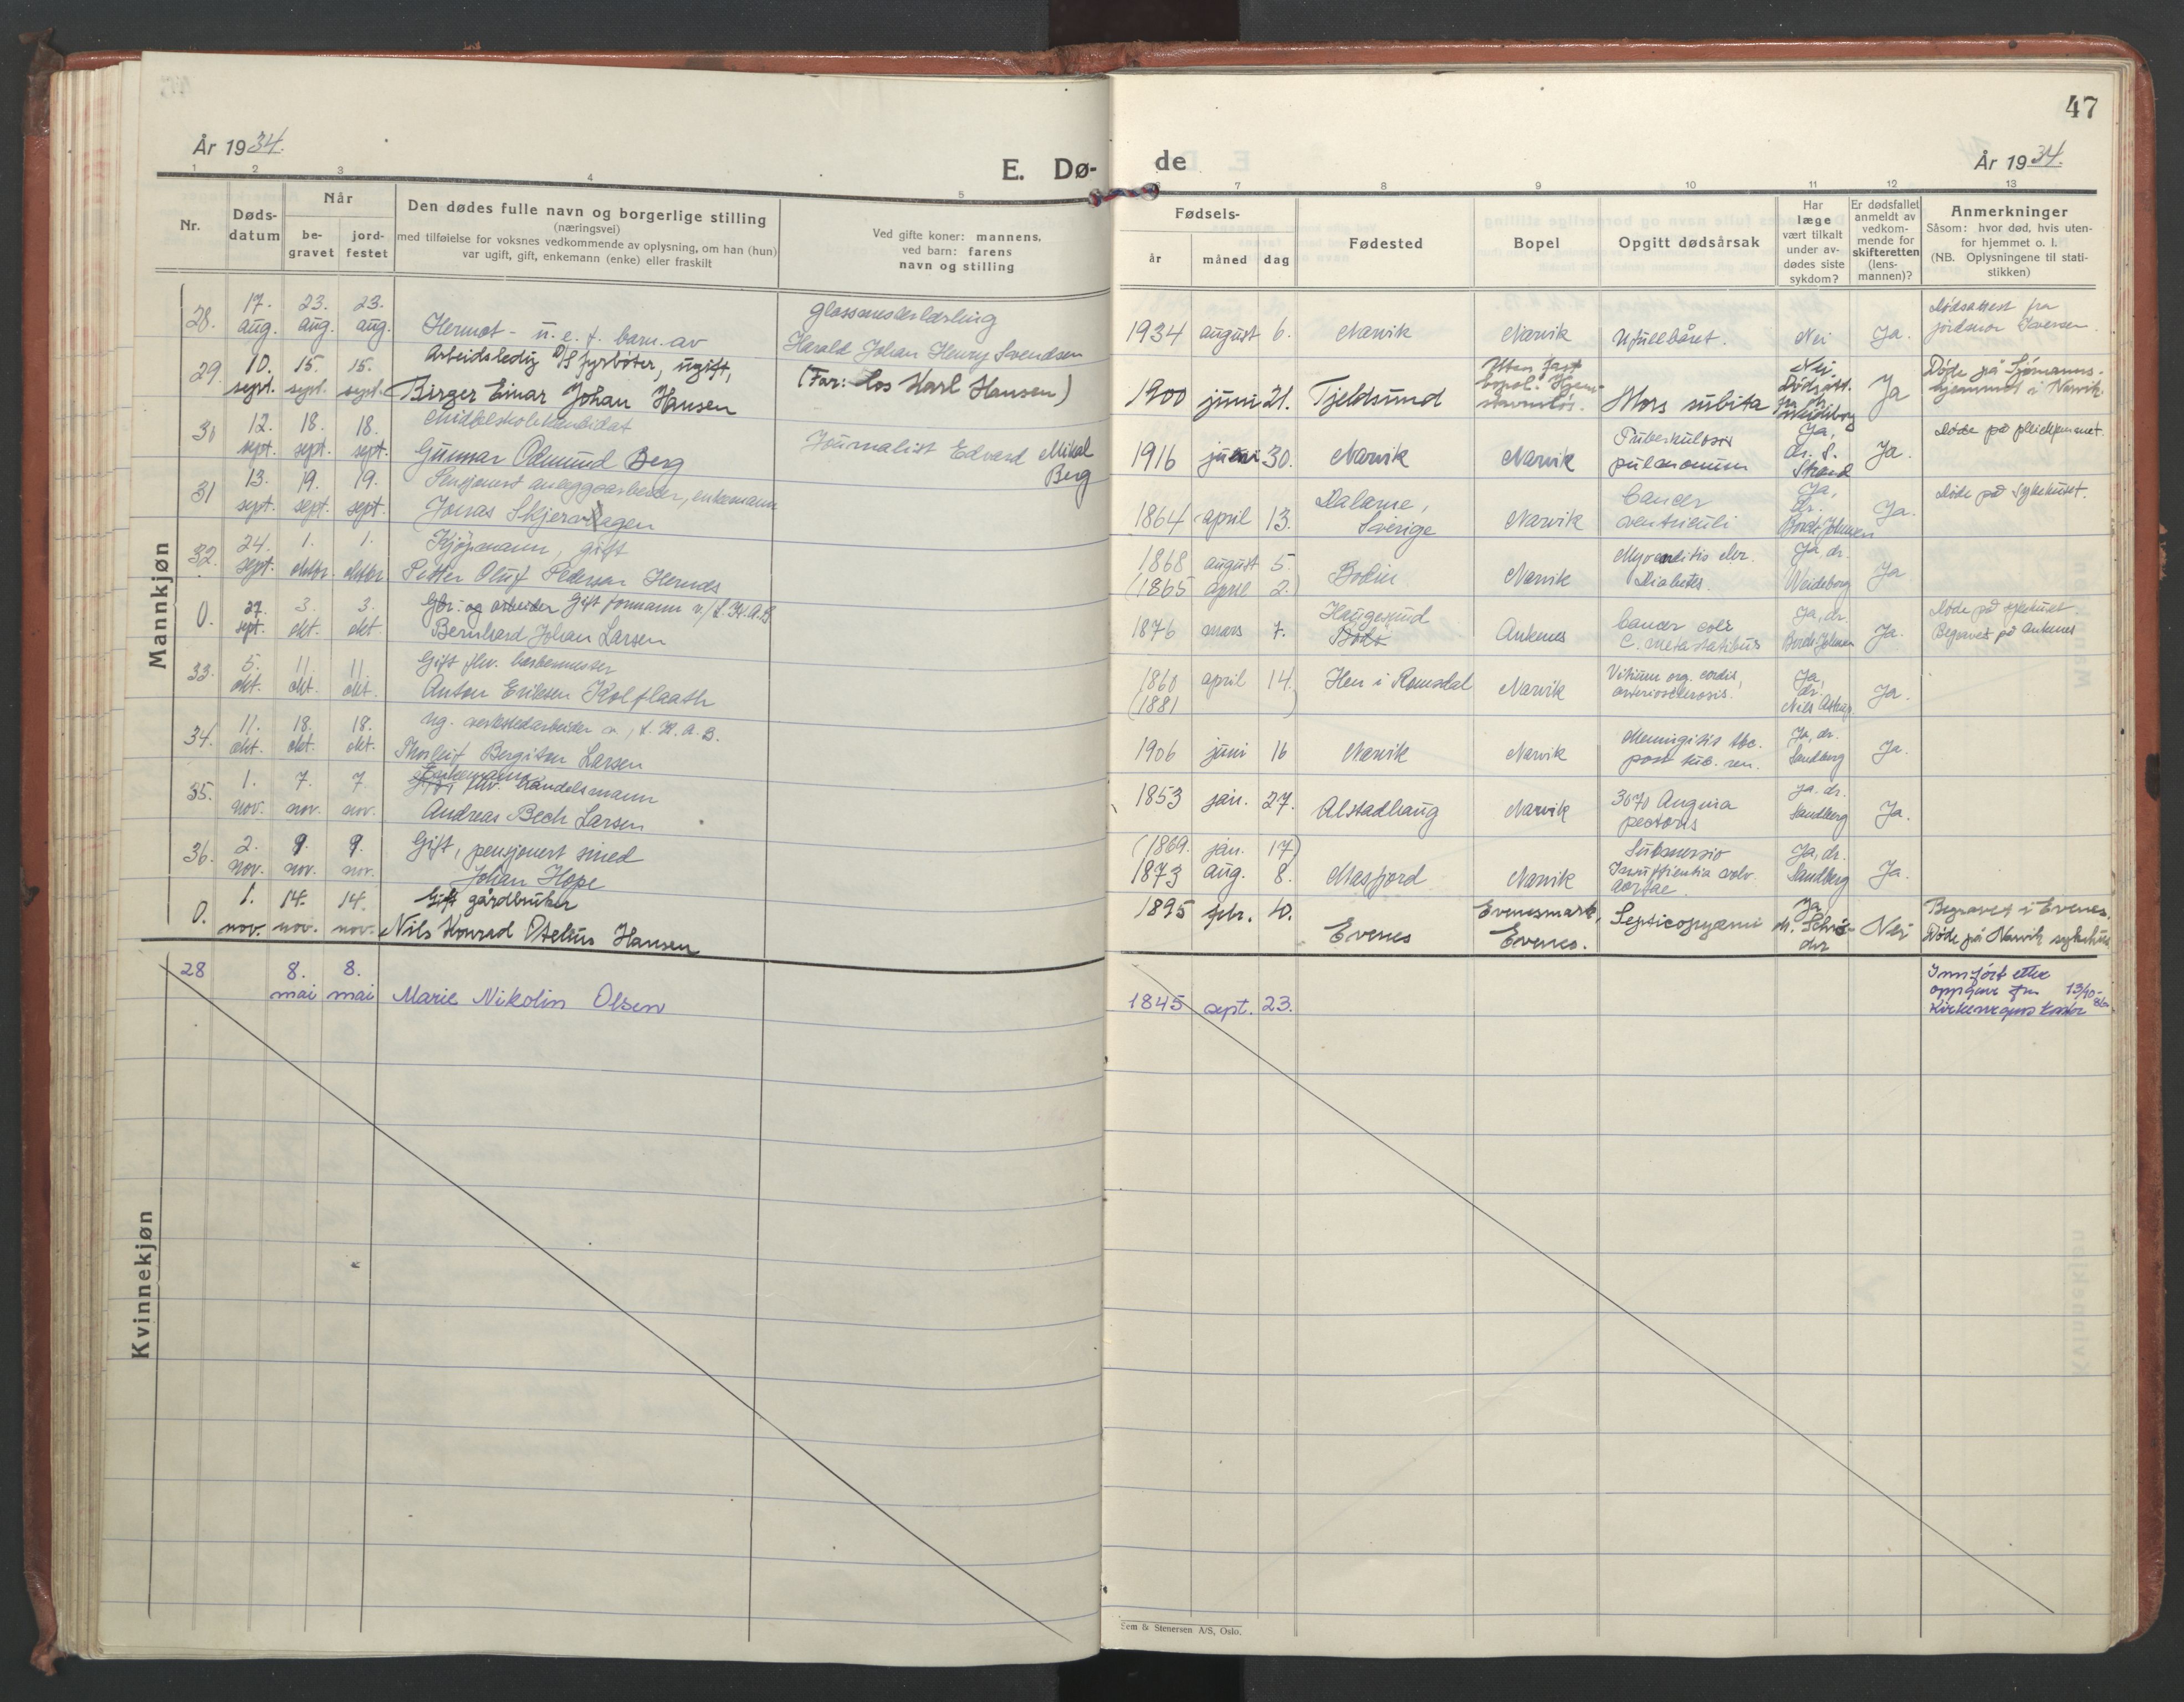 47
År 1934.
E. Dø-
de
År 1934.
1 2 3 4 5 6 7 8 9 10 11 12 13
Nr.
Døds-
datum
Når
be-
gravet
jord-
festet
Den dødes fulle navn og borgerlige stilling
(næringsvei)
med tilføielse for voksnes vedkommende av oplysning, om han (hun)
var ugift, gift, enkemann (enke) eller fraskilt
Ved gifte koner: mannens,
ved barn: farens
navn og stilling
Fødsels-
år
måned
dag
Fødested
Bopel
Opgitt dødsårsak
Har
læge
vært tilkalt
under av-
dødes siste
sykdom?
Er dødsfallet
anmeldt av
vedkom-
mende for
skifteretten
(lens-
mannen)?
Anmerkninger
Såsom: hvor død, hvis uten-
for hjemmet o. l.
(NB. Oplysningene til stati-
stikken)
Mannkjøn
28. 17. aug. 23. aug. 23. aug.
Hermot - u. e. f. barn av
Harald Johan Henry Svendsen
1934 august 6. Narvik Narvik Ufullbåret. Nei Ja.
Dødsattest fra
jordmor Iversen.
29. 10. sept. 15. sept. 15. sept.
Arbeidsledig D/S fyrbøter, ugift,
Birger Einar Johan Hansen
(Far: Los Karl Hansen)
1900 juni 21. Tjeldsund
Uten fast
bopel.
Mors subita
Nei.
Dødsatt.
fra dr.
Weideborg
Ja
Døde på Sjømanns-
hjemmet i Narvik.
30 12. sept. 18. sept. 18. sept.
Middelskolekandidat
Gunnar Odmund Berg
Journalist Edvard Mikal
Berg
1916 juni 30. Narvik Narvik
Tuberkulosis
pulmonum
Ja,
dr. S.
Strand
Ja.
Døde på pleiehjemmet.
31 13. sept. 19. sept. 19. sept.
Pensjonert anleggsarbeider, enkemann
Jonas Skjervhagen
1864 april 13.
Dalarne,
Sverige
Narvik
Cancer
ventriculi
Ja,
dr.
Borch-Johnsen
Ja.
Døde på sykehuset.
32. 24. sept. 1. oktbr. 1. oktbr.
Kjøpmann, gift
Petter Oluf Pedersen Hernes
1868 august 5.
(1865 april 2.)
Bodin Narvik
Diabetes.
Ja, dr.
Weideborg
Ja
0. 27. sept. 3. okt. 3. okt.
Gbr. og arbeider Gift formann v/ L.K.A.B
Bernhard Johan Larsen
1876 mars 7.
Haugesund
Bodø
Ankenes
Cancer coli
c. metastatibus
Ja, dr.
Borch Johnsen
Ja.
Døde på sykehuset.
Begravet på Ankenes
33. 5. okt. 11. okt. 11. okt.
Gift fhv. barbermester
Anton Eriksen Kolflaath
1860 april 14.
(1881 )
Hen i Romsdal Narvik
Vitium org. cordis,
arteriosclerosis.
Ja,
dr.
Nils Astrup
Ja.
34. 11. okt. 18. okt. 18. okt.
Ug. verkstedarbeider v. L.K.A.B.
Thorleif Bergiton Larsen
1906 juni 16 Narvik Narvik
Meningitis tbc.
post tub. ren.
Ja, dr.
Sandberg
Ja.
35. 1. nov. 7. nov. 7 nov.
Enkemann
Gift, fhv. handelsmann
Andreas Bech Larsen
1853 jan. 27. Alstadhaug Narvik
Angina
pectoris
Ja. dr.
Sandberg
Ja.
36. 2. nov. 9. nov. 9. nov.
Gift, pensjonert smed
Johan Hope
(1869. jan. 17)
1873 aug. 8. Masfjord Narvik
Submersio
Insuffientia valv.
aortae.
Ja, dr.
Sandberg
Ja.
0. 1. nov. 14. nov. 14. nov.
Gift gårdbruker
Nils Konrad Otelius Hansen
1895 febr. 10.
Evenes
Evenesmark,
Evenes.
Septicopyæmi
Ja,
dr. Schrø-
der
Nei
Begravet i Evenes.
Døde på Narvik sykehus
Kvinnekjøn
28 8. mai 8. mai Marie Nikolin Olsen
1845 sept. 23.
Innført etter
oppgave fra 13/10-86
Kirkevergens kontor
Sem & Stenersen A/S, Oslo.